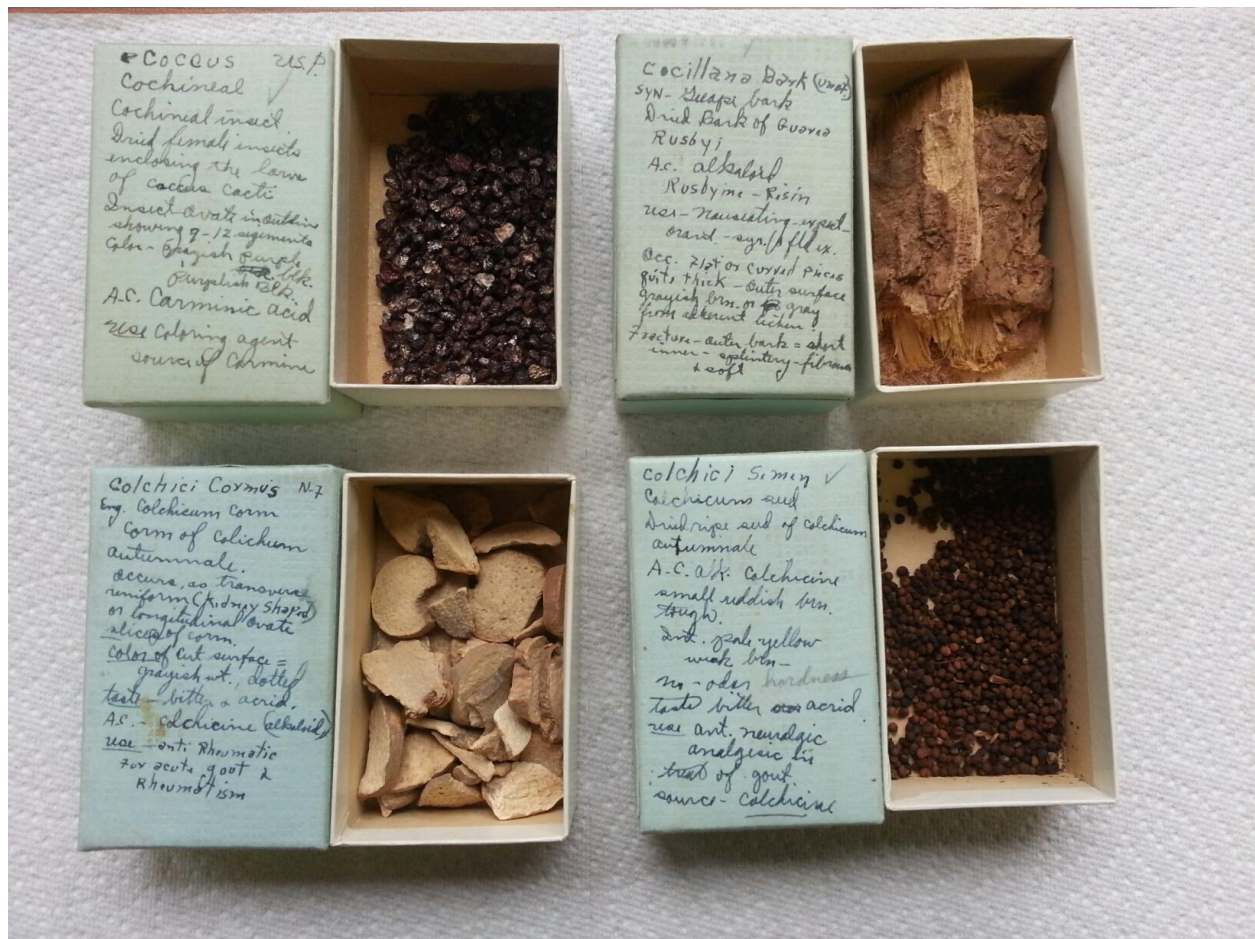 Coccus U.S.P.
Cochineal
Cochineal insect
Dried female insects
enclosing the larvae
of coccus cacti
Insect ovate in outline
showing 9-12 segements
color - grayish purple
blk.
Purplish blk.
A.C. Carminic acid
use coloring agent
source of Carmine
Cocillana Bark
SYN - Guapi bark
Dried Bark of Guarea
Rusbyi
A.C. alkaloid
Rusbyine - Risin
use - nauseating - expect-
orant - syr. fl. ex.
Occ. flat or curved pieces
quite thick - outer surface
grayish brn. or gray
from adherent lichen.
Fracture - outer bark = short
inner - splintery - fibrous
& soft
Colchici Cormus N-7
Eng. Colchicum corm
corm of Colichum
autumnale.
occurs, as transverse
reniform (Kidney Shaped)
or longitudinal ovate
slices of corm.
color of cut surface =
grayish wt., dotted
taste - bitter & acrid.
A.C. - colchicine (alkaloid)
use - anti Rheumatic
For acute gout &
Rheumatism
Colchici Semen
Colchicum seed
Dried ripe seed of colchicum
autumnale
A.C. alk. Colchicine
small reddish brn.
tough.
int. pale yellow
weak brn-
no - odor hardness
taste bitter acrid
use ant. neuralgic
analgesic in
treat of gout.
source - Colchicine